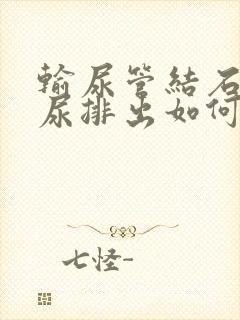 輸尿管結石
尿排出如何
七怪-